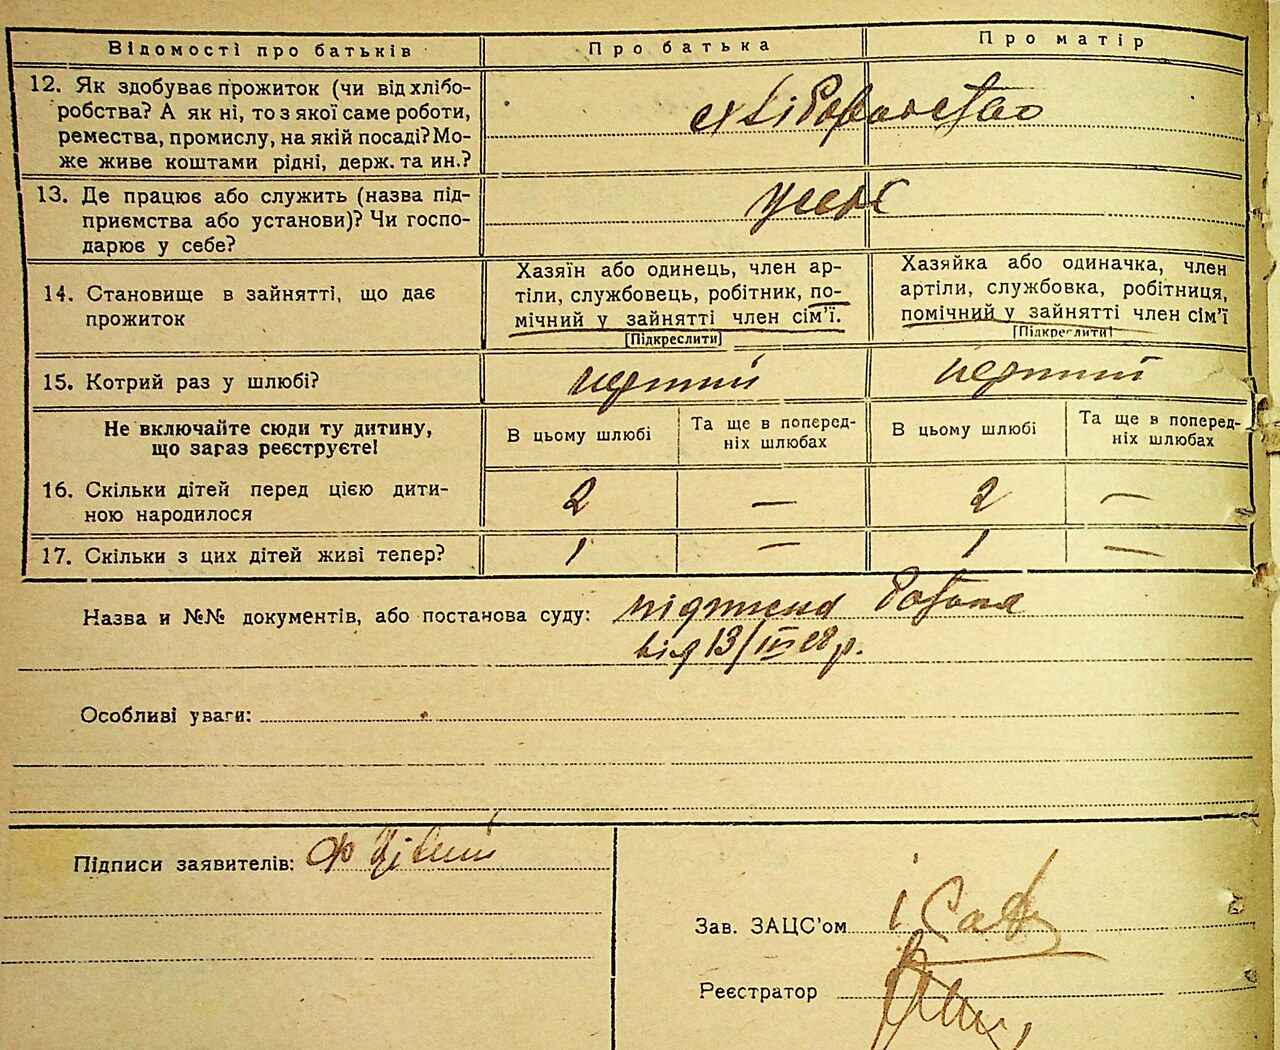 Відомості про батьків
Про батька
Про матір
12. Як здобуває прожиток (чи від хлібо-
робства? А як ні, то з якої саме роботи,
ремества, промислу, на якій посаді? Мо-
же живе коштами рідні, держ. та ин.?
хліборобство
13. Де працює або служить (назва під-
приємства або установи)? Чи госпо-
дарює у себе?
у себе
14. Становище в зайнятті, що дає
прожиток
Хазяїн або одинець, член ар-
тіли, службовець, робітник, по-
мічний у зайнятті член сім'ї.
[Підкреслити]
Хазяйка або одиначка, член
артіли, службовка, робітниця,
помічний у зайнятті член сім'ї
[Підкреслити]
15. Котрий раз у шлюбі?
перший
перший
Не включайте сюди ту дитину,
що зараз реєструєте!
В цьому шлюбі
Та ще в поперед-
ніх шлюбах
В цьому шлюбі
Та ще в поперед-
ніх шлюбах
16. Скільки дітей перед цією дити-
ною народилося
2
—
2
—
17. Скільки з цих дітей живі тепер?
1
—
1
—
Назва и №№ документів, або постанова суду:
від 13/III 28 р.
Особливі уваги:
Підписи заявителів:
Зав. ЗАЦС'ом
Реєстратор